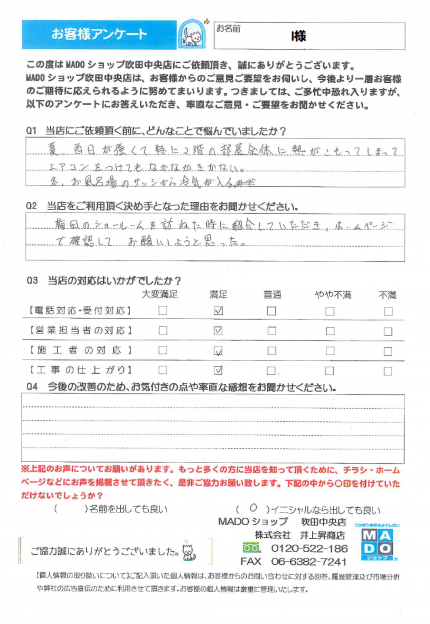 お客様アンケート
お名前
I様
この度はMADOショップ吹田中央店にご依頼頂き、誠にありがとうございます。
MADOショップ吹田中央店は、お客様からのご意見ご要望をお伺いし、今後より一層お客様
のご期待に応えられるように努めてまいります。つきましては、ご多忙中恐れ入りますが、
以下のアンケートにお答えいただき、率直なご意見・ご要望をお聞かせください。
Q1 当店にご依頼頂く前に、どんなことで悩んでいましたか？
夏、西日が強くて特に2階の部屋全体に熱がこもってしまって
エアコンをつけてもなかなかきかない。
冬、お風呂場のサッシから冷気が入る
Q2 当店をご利用頂く決め手となった理由をお聞かせください。
梅田のショールームを訪ねた時に紹介していただき、ホームページ
で確認して お願いしようと思った。
Q3 当店の対応はいかがでしたか？
大変満足 満足 普通 やや不満 不満
【電話対応・受付対応】 □ ☑ □ □ □
【営業担当者の対応】 □ ☑ □ □ □
【施工者の対応】 □ ☑ □ □ □
【工事の仕上がり】 □ ☑ □ □ □
Q4 今後の改善のため、お気付きの点や率直な感想をお聞かせください。
※上記のお声についてお願いがあります。もっと多くの方に当店を知って頂くために、チラシ・ホーム
ページなどにお声を掲載させて頂きたく、是非ご協力お願い致します。下記の中から〇印を付けていた
だけないでしょうか？
（ ）名前を出しても良い （ 〇 ）イニシャルなら出しても良い
MADOショップ 吹田中央店
株式会社 井上昇商店
0120-522-186
FAX 06-6382-7241
MADO
ショップ
ご協力誠にありがとうございました。
【個人情報の取り扱いについて】ご記入頂いた個人情報は、お客様からのお問い合わせに対する回答、履歴管理及び市場分析
や弊社の広告宣伝のために利用させて頂きます。お客様の個人情報は厳重に管理いたします。